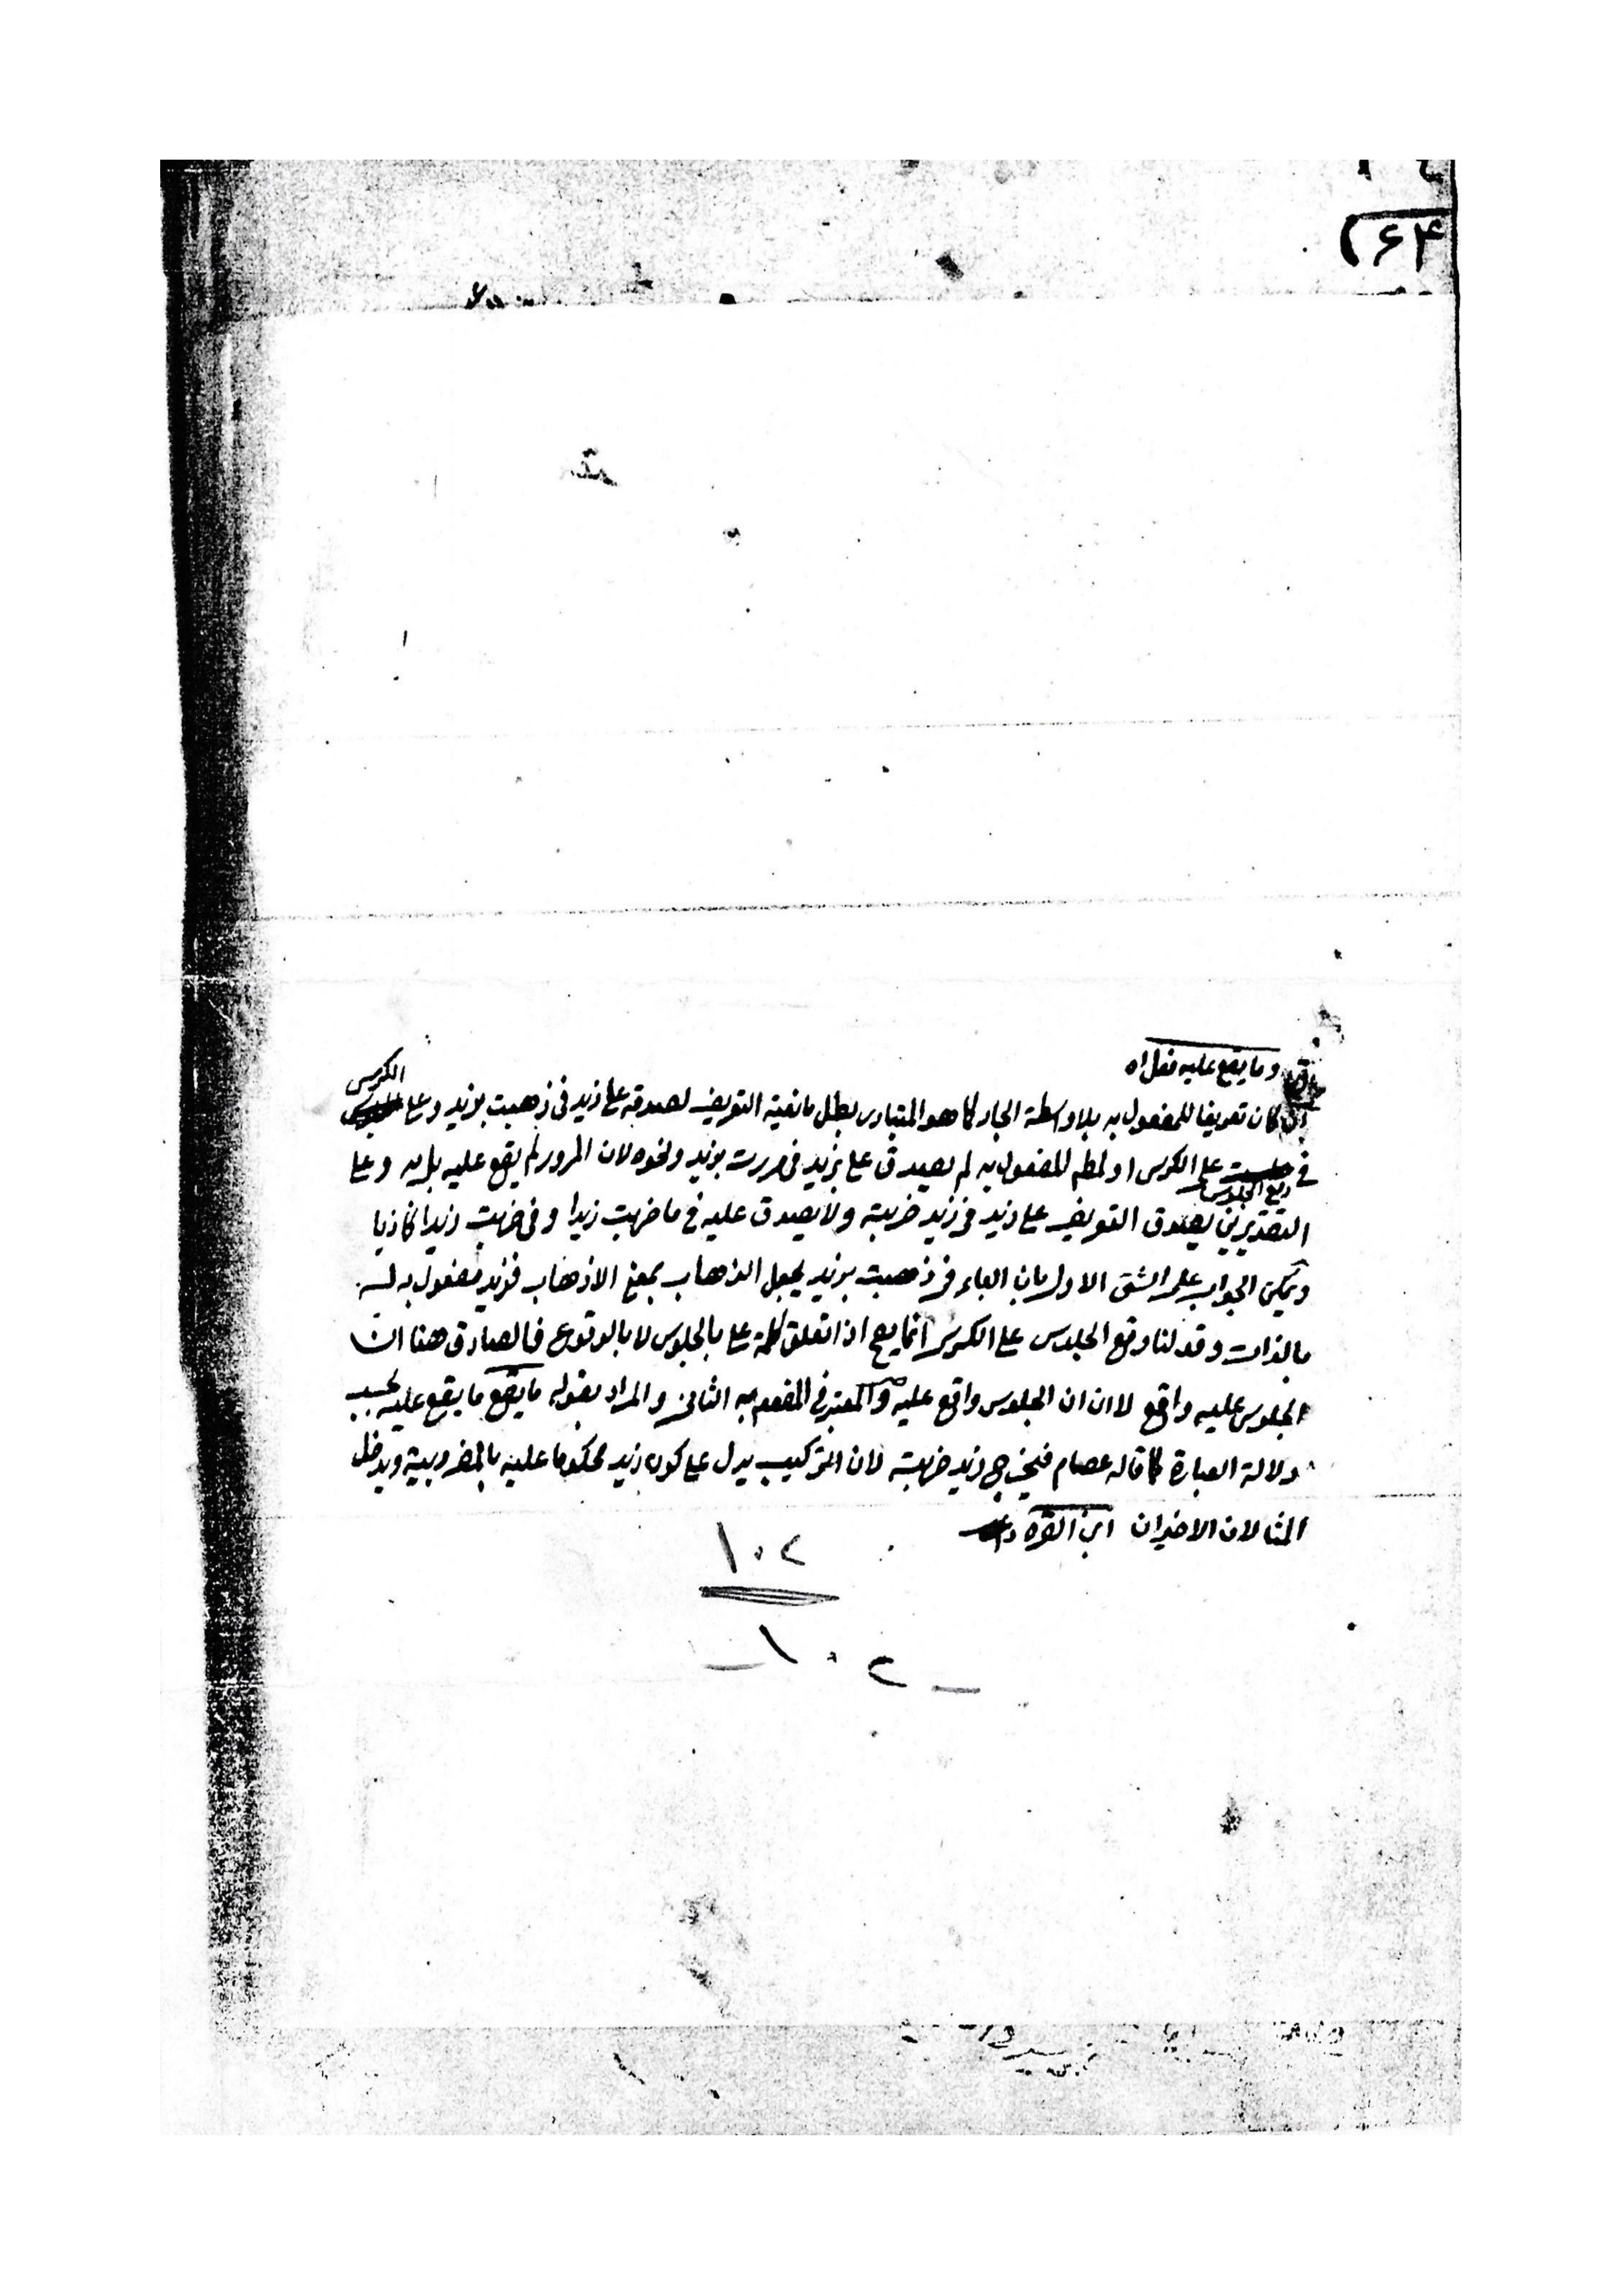 وما يقع عليه فعل اه
ان كان تعريفا للمفعول به بلا واسطة الجار كما هو المتبادر يبطل مانعية التعريف لصدقه على زيد في ذهبت بزيد وعلى الكرسي
في وقع الجلوس على الكرسي او لمطلق المفعول به لم يصدق على بزيد في مررت بزيد ونحوه لان المرور لم يقع عليه بل به وعلى
التقديرين يصدق التعريف على زيد في زيد ضربته ولا يصدق عليه في ما ضربت زيدا وفي ضربت زيدا كاذبا
ويمكن الجواب على الشق الاول بان الباء في ذهبت بزيد يجعل الذهاب بمعنى الاذهاب فزيد مفعول به له
بالذات وقولنا وقع الجلوس على الكرسي انما يصح اذا تعلق كلمة على بالجلوس لا بالوقوع فالصادق هنا ان
الجلوس عليه واقع لا ان الجلوس واقع عليه والمعتبر في المفعول به الثاني والمراد بقوله ما يقع ما يقع عليه بحسب
دلالة العبارة كما قاله عصام فيخرج زيد ضربته لان التركيب يدل على كون زيد محكوما عليه بالمضروبية ويدخل
المثالان الاخيران ابن القره داغي
١٠٢
١٠٢